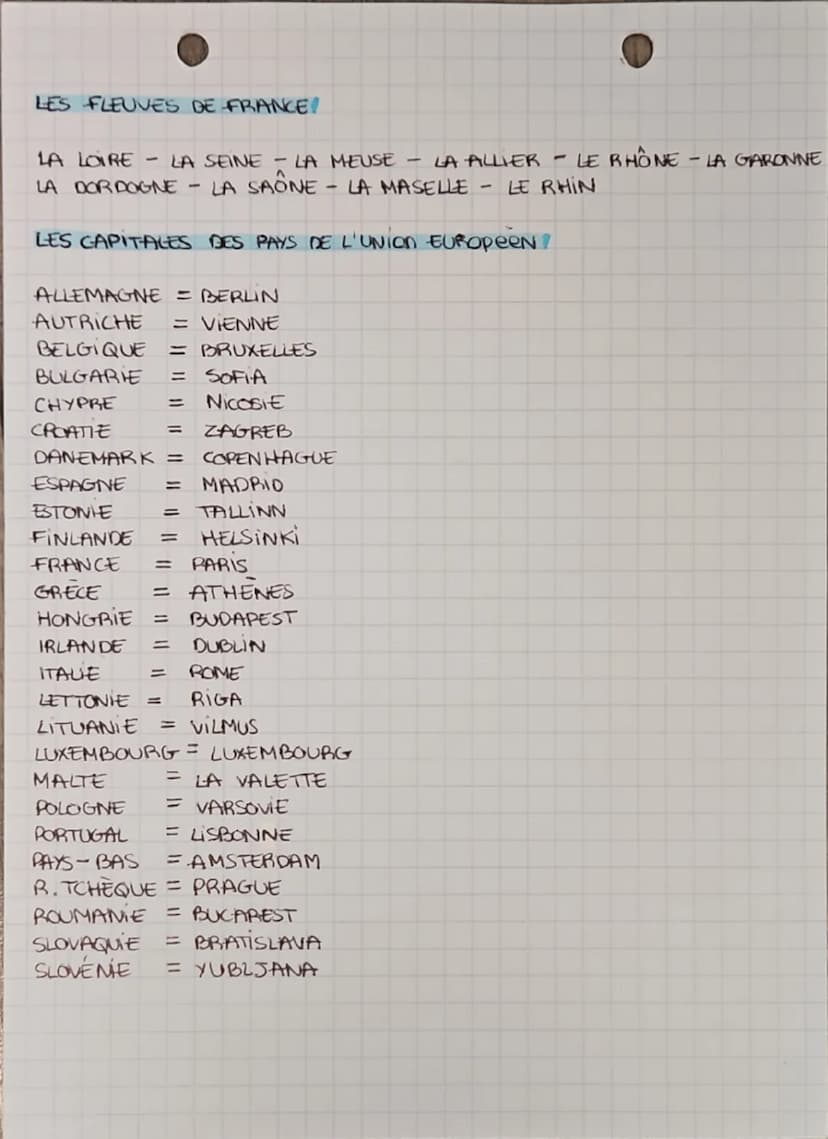 LES FLEUVES DE FRANCE!
LA LOIRE - LA SEINE - LA MEUSE - LA ALLIER - LE RHÔNE - LA GARONNE
LA DORDOGNE - LA SAÔNE - LA MASELLE - LE RHIN
LES CAPITALES DES PAYS DE L'UNION EUROPÉEN!
ALLEMAGNE = BERLIN
AUTRICHE = VIENNE
BELGIQUE = BRUXELLES
BULGARIE = SOFIA
CHYPRE = NICOSIE
CROATIE = ZAGREB
DANEMARK = COPENHAGUE
ESPAGNE = MADRID
ESTONIE = TALLINN
FINLANDE = HELSINKI
FRANCE = PARIS
GRÈCE = ATHÈNES
HONGRIE = BUDAPEST
IRLANDE = DUBLIN
ITALIE = ROME
LETTONIE = RIGA
LITUANIE = VILMUS
LUXEMBOURG = LUXEMBOURG
MALTE = LA VALETTE
POLOGNE = VARSOVIE
PORTUGAL = LISBONNE
PAYS-BAS = AMSTERDAM
R. TCHÈQUE = PRAGUE
ROUMANIE = BUCAREST
SLOVAQUIE = BRATISLAVA
SLOVÉNIE = YUBLJANA